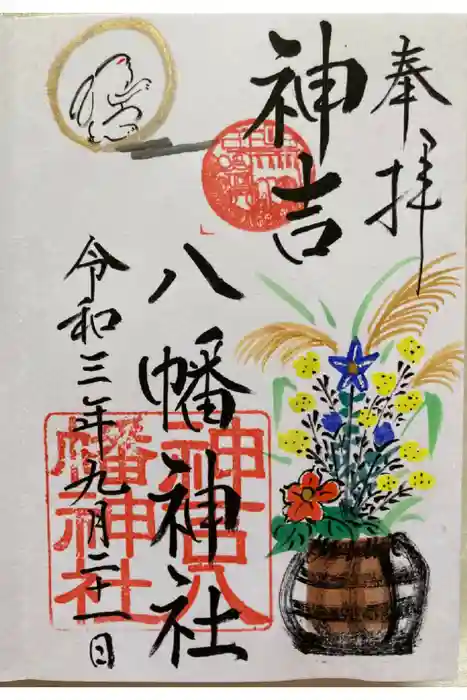 奉拝
神吉
八幡神社
令和三年九月二十一日
神吉八幡神社